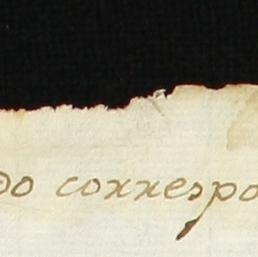 do correspo